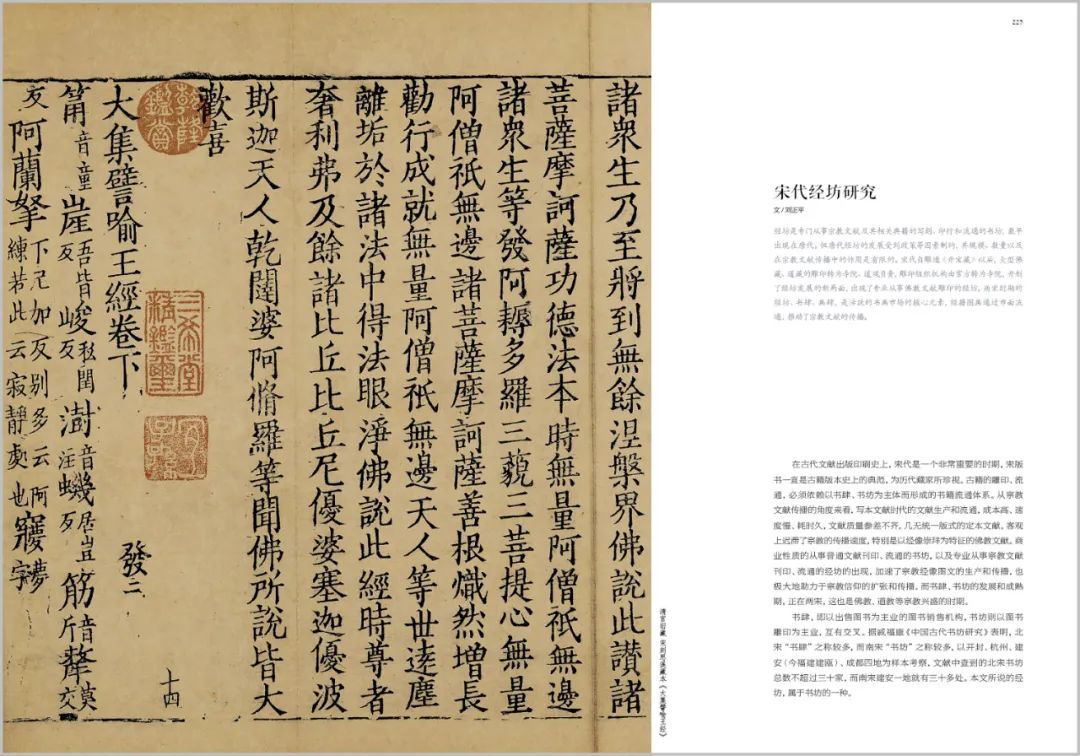 諸衆生乃至將到無餘涅槃界佛說此讃諸
菩薩摩訶薩功德法本時無量阿僧祇無邊
諸衆生等發阿耨多羅三藐三菩提心無量
阿僧祇無邊諸菩薩摩訶薩善根熾然增長
勸行成就無量阿僧祇無邊天人等世遠塵
離垢於諸法中得法眼淨佛說此經時尊者
奢利弗及餘諸比丘比丘尼優婆塞迦優波
斯迦天人乾闥婆阿脩羅等聞佛所說皆大
歡喜
乾隆鑑賞
三希堂精鑑璽
宜子孫
十四
大集譬喻王經卷下
發二
筩音童崖吾皆反峻私閏反澍音注蟣居豈反筋音斤犛莫交
反阿蘭拏下尼加反別多云阿練若此云寂靜處也
清宫旧藏 宋刻思溪藏本《大集譬喻王经》
225
宋代经坊研究
文/刘正平
经坊是专门从事宗教文献及其相关典籍的写刻、印行和流通的书坊，最早
出现在唐代，但唐代经坊的发展受到政策等因素制约，其规模、数量以及
在宗教文献传播中的作用是有限的。宋代自雕造《开宝藏》以后，大型佛
藏、道藏的雕印转为寺院、道观自费，雕印组织机构由官方转为寺院，开创
了经坊发展的新局面，出现了专业从事佛教文献雕印的经坊。两宋时期的
经坊、书肆、画肆，是活跃的书画市场的核心元素，经籍图画通过市面流
通，推动了宗教文献的传播。
在古代文献出版印刷史上，宋代是一个非常重要的时期，宋版
书一直是古籍版本史上的典范，为历代藏家所珍视。古籍的雕印、流
通，必须依赖以书肆、书坊为主体而形成的书籍流通体系。从宗教
文献传播的角度来看，写本文献时代的文献生产和流通，成本高、速
度慢、耗时久，文献质量参差不齐，几无统一版式的定本文献，客观
上迟滞了宗教的传播速度，特别是以经像崇拜为特征的佛教文献。商
业性质的从事普通文献刊印、流通的书坊，以及专业从事宗教文献
刊印、流通的经坊的出现，加速了宗教经像图文的生产和传播，也
极大地助力于宗教信仰的扩张和传播。而书肆、书坊的发展和成熟
期，正在两宋，这也是佛教、道教等宗教兴盛的时期。
书肆，即以出售图书为主业的图书销售机构，书坊则以图书
雕印为主业，互有交叉。据戚福康《中国古代书坊研究》表明，北
宋“书肆”之称较多，而南宋“书坊”之称较多，以开封、杭州、建
安（今福建建瓯）、成都四地为样本考察，文献中查到的北宋书坊
总数不超过三十家，而南宋建安一地就有三十多处。本文所说的经
坊，属于书坊的一种。